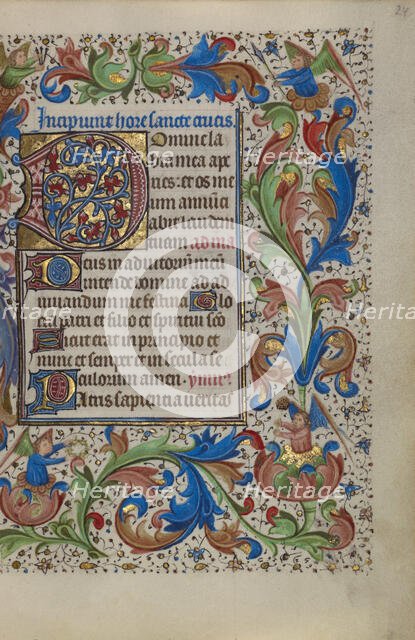 24
Incipiunt hore sancte crucis.
Domine la
bia mea ape
ries: et os me
um annūci
abit laudem
tuam. ad ma
Deus in adiutoriū meū
intende domine ad ad
iuuandum me festina Glo
ria patri et filio et spiritui sco
Sicut erat in principio et
nunc et semper et in secula se
culorum amen. ymnᵒ
Patris sapientia ueritas
Heritage
Heritage
Heritage
Heritage
Heritage
Heritage
Heritage
Heritage